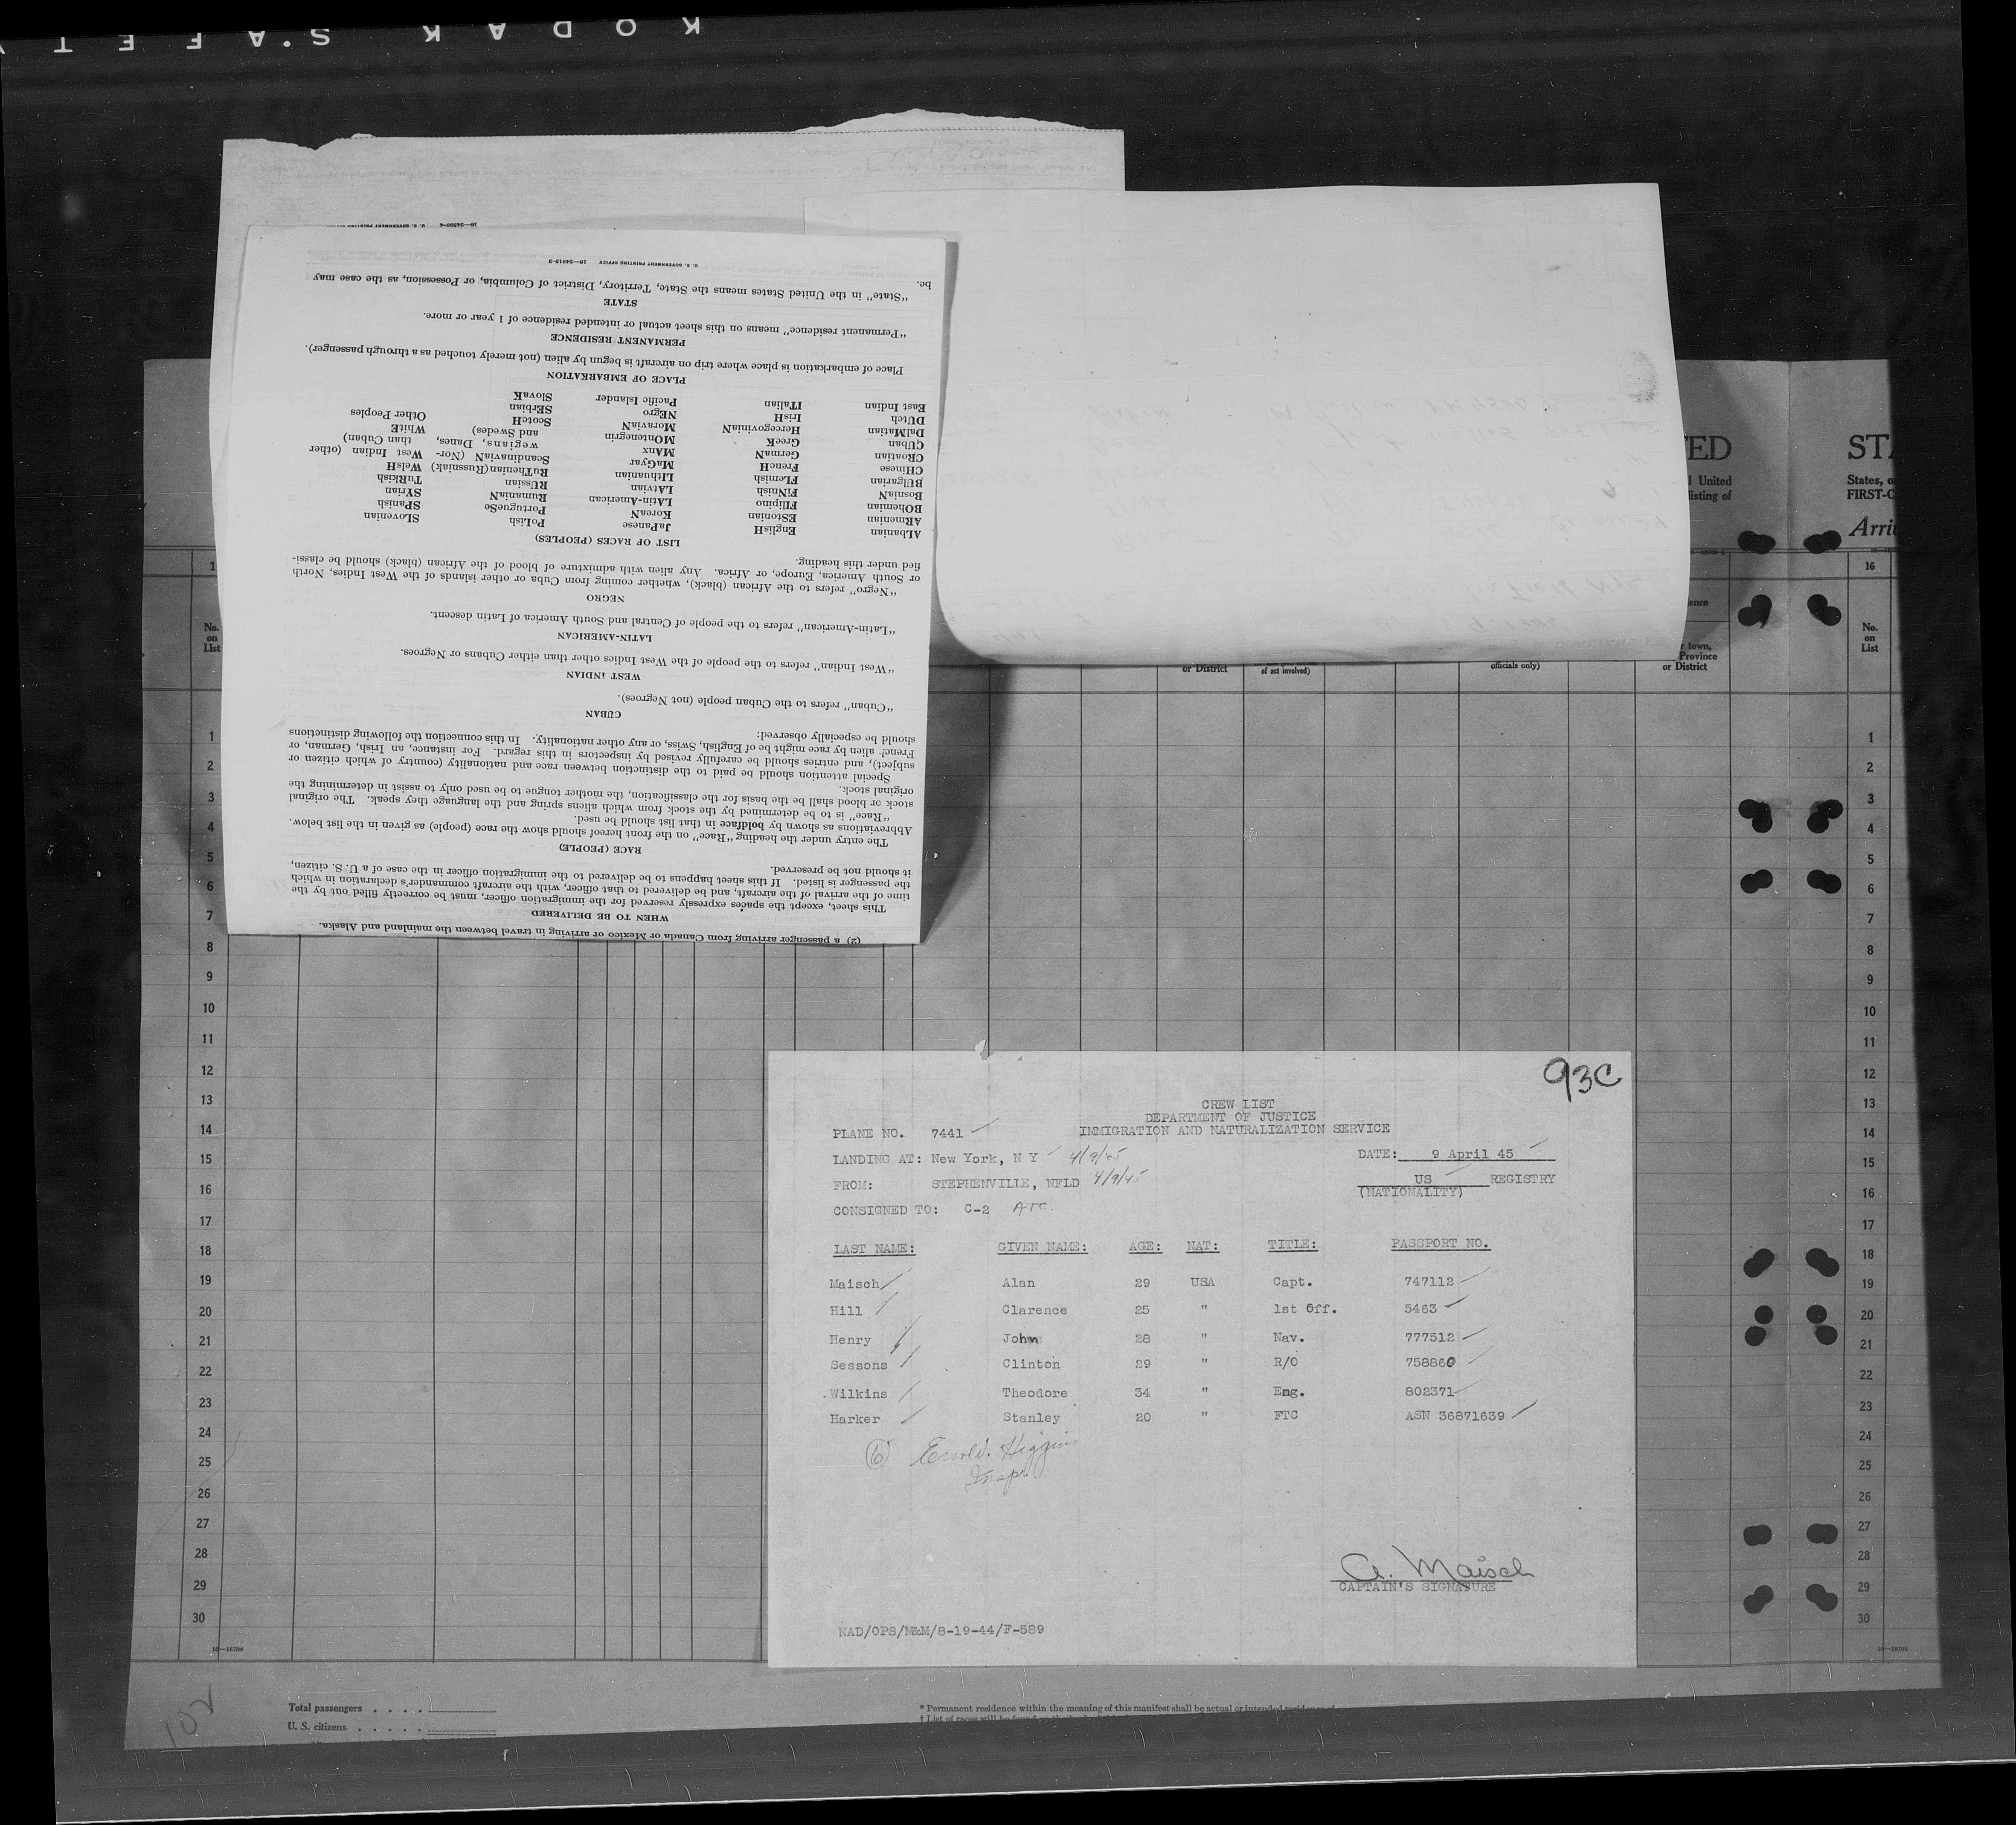 KODAK S'AFET
U. S. GOVERNMENT PRINTING OFFICE 16—24915-2
(2) a passenger arriving from Canada or Mexico or arriving in travel between the mainland and Alaska.
WHEN TO BE DELIVERED
This sheet, except the spaces expressly reserved for the immigration officer, must be correctly filled out by the
time of the arrival of the aircraft, and be delivered to that officer, with the aircraft commander's declaration in which
the passenger is listed. If this sheet happens to be delivered to the immigration officer in the case of a U. S. citizen,
it should not be preserved.
RACE (PEOPLE)
The entry under the heading "Race" on the front hereof should show the race (people) as given in the list below.
Abbreviations as shown by boldface in that list should be used.
"Race" is to be determined by the stock from which aliens spring and the language they speak. The original
stock or blood shall be the basis for the classification, the mother tongue to be used only to assist in determining the
original stock.
Special attention should be paid to the distinction between race and nationality (country of which citizen or
subject), and entries should be carefully revised by inspectors in this regard. For instance, an Irish, German, or
French alien by race might be of English, Swiss, or any other nationality. In this connection the following distinctions
should be especially observed:
CUBAN
"Cuban" refers to the Cuban people (not Negroes).
WEST INDIAN
"West Indian" refers to the people of the West Indies other than either Cubans or Negroes.
LATIN-AMERICAN
"Latin-American" refers to the people of Central and South America of Latin descent.
NEGRO
"Negro" refers to the African (black), whether coming from Cuba or other islands of the West Indies, North
or South America, Europe, or Africa. Any alien with admixture of blood of the African (black) should be classi-
fied under this heading.
LIST OF RACES (PEOPLES)
ALbanian EnglisH JaPanese PoLish SLovenian
ARmenian EStonian KoreaN PortugueSe SPanish
BOhemian FIlipino LAtin-American RumaniaN SYrian
BosniaN FiNnish LATvian RUssian TuRkish
BUlgarian FLemish LIthuanian RuThenian (Russniak) WelsH
CHinese FrencH MaGyar Scandinavian (Nor- West Indian (other
CRoatian GermaN MAnx wegians, Danes, than Cuban)
CUban GreeK MOntenegrin and Swedes) WhitE
DalMatian HercegoviniaN MoraviaN ScotcH Other Peoples
DUtch IrisH NEgro SErbian
East Indian ITalian Pacific Islander SlovaK
PLACE OF EMBARKATION
Place of embarkation is place where trip on aircraft is begun by alien (not merely touched as a through passenger).
PERMANENT RESIDENCE
"Permanent residence" means on this sheet actual or intended residence of 1 year or more.
STATE
"State" in the United States means the State, Territory, District of Columbia, or Possession, as the case may
be.
TED STA
United States, o
listing of FIRST-C
Arri
1 16
No. on List
or District
of act involved)
officials only)
town, Province or District
No. on List
1 1
2 2
3 3
4 4
5 5
6 6
7 7
8 8
9 9
10 10
11 11
12 12
13 13
14 14
15 15
16 16
17 17
18 18
19 19
20 20
21 21
22 22
23 23
24 24
25 25
26 26
27 27
28 28
29 29
30 30
93C
CREW LIST
DEPARTMENT OF JUSTICE
PLANE NO. 7441 IMMIGRATION AND NATURALIZATION SERVICE
LANDING AT: New York, N Y 4/9/45 DATE: 9 April 45
FROM: STEPHENVILLE, NFLD 4/9/45 US REGISTRY
(NATIONALITY)
CONSIGNED TO: C-2 ATC
LAST NAME: GIVEN NAME: AGE: NAT: TITLE: PASSPORT NO.
Maisch Alan 29 USA Capt. 747112
Hill Clarence 25 " 1st Off. 5463
Henry John 28 " Nav. 777512
Sessons Clinton 29 " R/O 758860
Wilkins Theodore 34 " Eng. 802371
Harker Stanley 20 " FTC ASN 36871639
6 Enold. Higgins
Inspr.
A. Maisch
CAPTAIN'S SIGNATURE
NAD/OPS/M&M/8-19-44/F-589
102
Total passengers . . . .
U. S. citizens . . . . .
* Permanent residence within the meaning of this manifest shall be actual or intended residence of